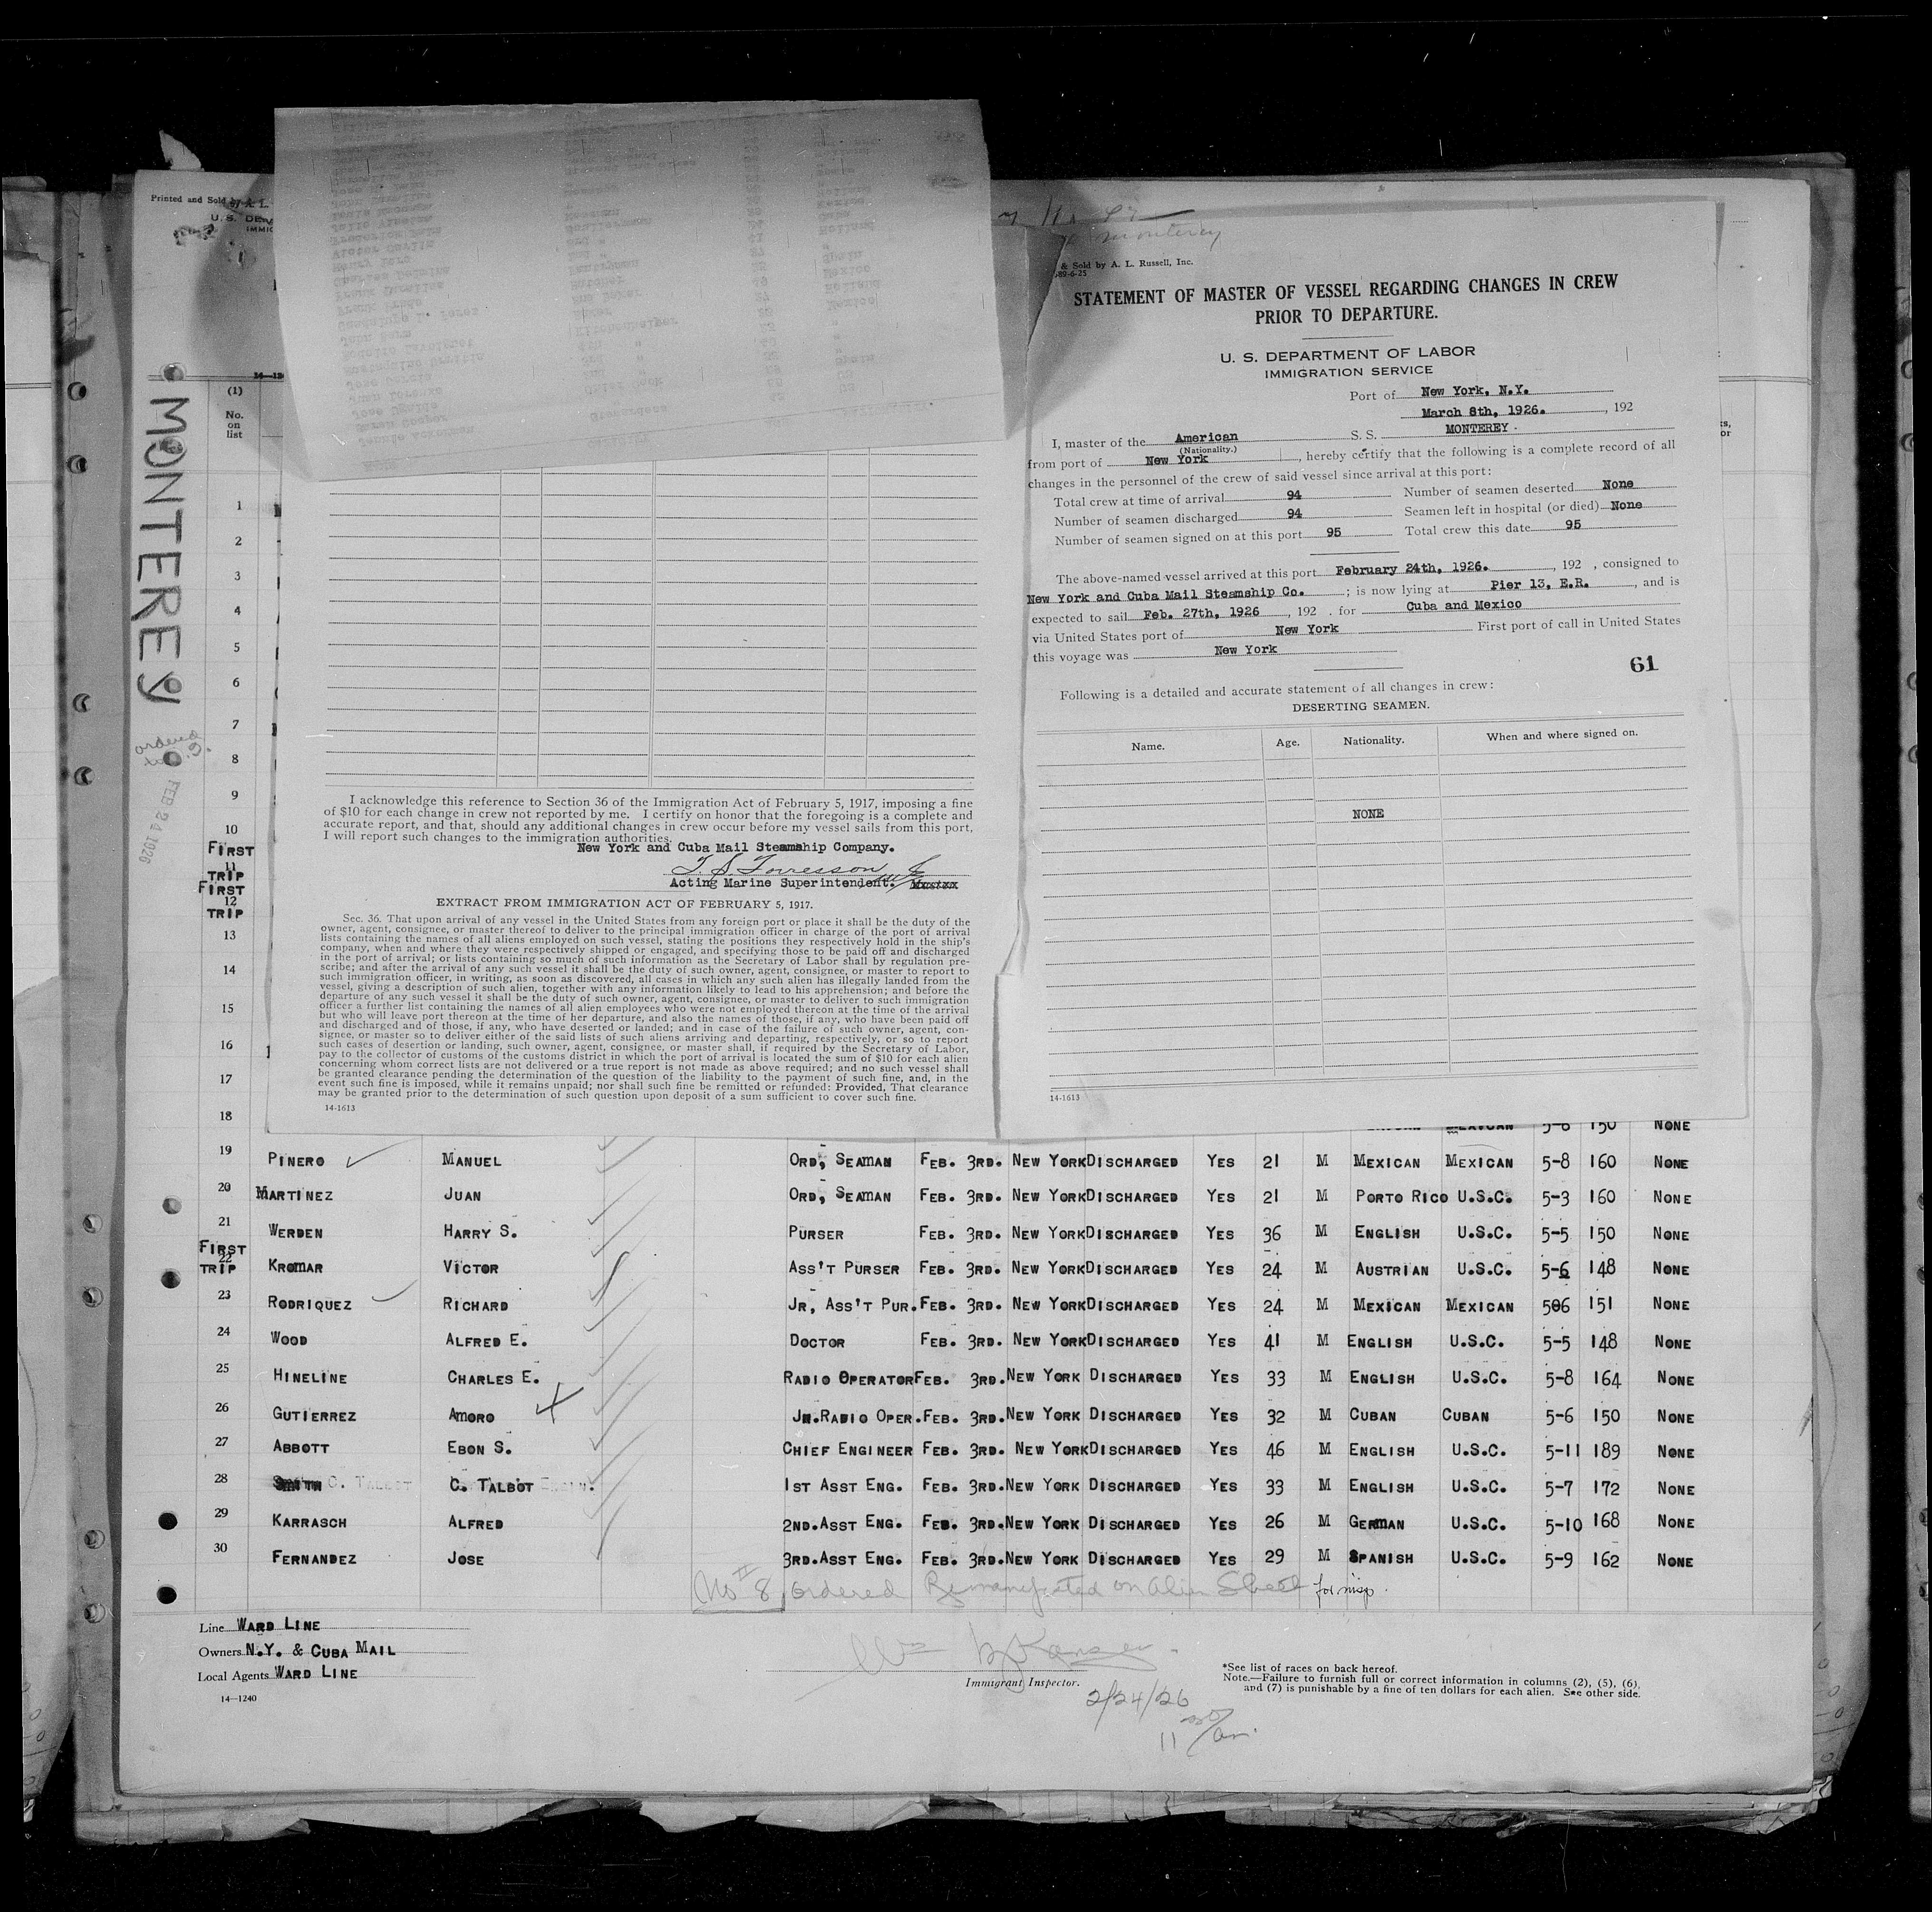 Printed and Sold by A. L.
U. S. DE
IMMIG
14—12
MONTEREY
ordered
FEB 24 1926
(1)
No.
on
list
1
2
3
4
5
6
7
8
9
10
FIRST
11
TRIP
FIRST
12
TRIP
13
14
15
16
17
18
I acknowledge this reference to Section 36 of the Immigration Act of February 5, 1917, imposing a fine
of $10 for each change in crew not reported by me. I certify on honor that the foregoing is a complete and
accurate report, and that, should any additional changes in crew occur before my vessel sails from this port,
I will report such changes to the immigration authorities.
New York and Cuba Mail Steamship Company.
Acting Marine Superintendent.
EXTRACT FROM IMMIGRATION ACT OF FEBRUARY 5, 1917.
Sec. 36. That upon arrival of any vessel in the United States from any foreign port or place it shall be the duty of the
owner, agent, consignee, or master thereof to deliver to the principal immigration officer in charge of the port of arrival
lists containing the names of all aliens employed on such vessel, stating the positions they respectively hold in the ship's
company, when and where they were respectively shipped or engaged, and specifying those to be paid off and discharged
in the port of arrival; or lists containing so much of such information as the Secretary of Labor shall by regulation pre-
scribe; and after the arrival of any such vessel it shall be the duty of such owner, agent, consignee, or master to report to
such immigration officer, in writing, as soon as discovered, all cases in which any such alien has illegally landed from the
vessel, giving a description of such alien, together with any information likely to lead to his apprehension; and before the
departure of any such vessel it shall be the duty of such owner, agent, consignee, or master to deliver to such immigration
officer a further list containing the names of all alien employees who were not employed thereon at the time of the arrival
but who will leave port thereon at the time of her departure, and also the names of those, if any, who have been paid off
and discharged and of those, if any, who have deserted or landed; and in case of the failure of such owner, agent, con-
signee, or master so to deliver either of the said lists of such aliens arriving and departing, respectively, or so to report
such cases of desertion or landing, such owner, agent, consignee, or master shall, if required by the Secretary of Labor,
pay to the collector of customs of the customs district in which the port of arrival is located the sum of $10 for each alien
concerning whom correct lists are not delivered or a true report is not made as above required; and no such vessel shall
be granted clearance pending the determination of the question of the liability to the payment of such fine, and, in the
event such fine is imposed, while it remains unpaid; nor shall such fine be remitted or refunded: Provided, That clearance
may be granted prior to the determination of such question upon deposit of a sum sufficient to cover such fine.
14-1613
Monterey
& Sold by A. L. Russell, Inc.
89-6-25
STATEMENT OF MASTER OF VESSEL REGARDING CHANGES IN CREW
PRIOR TO DEPARTURE.
U. S. DEPARTMENT OF LABOR
IMMIGRATION SERVICE
Port of New York, N.Y.
March 8th, 1926. , 192
I, master of the American S. S. MONTEREY .
(Nationality.)
from port of New York , hereby certify that the following is a complete record of all
changes in the personnel of the crew of said vessel since arrival at this port:
Total crew at time of arrival 94 Number of seamen deserted None
Number of seamen discharged 94 Seamen left in hospital (or died) None
Number of seamen signed on at this port 95 Total crew this date 95
The above-named vessel arrived at this port February 24th, 1926. , 192 , consigned to
New York and Cuba Mail Steamship Co. ; is now lying at Pier 13, E.R. , and is
expected to sail Feb. 27th, 1926 , 192 . for Cuba and Mexico
via United States port of New York First port of call in United States
this voyage was New York
61
Following is a detailed and accurate statement of all changes in crew:
DESERTING SEAMEN.
Name. Age. Nationality. When and where signed on.
NONE
14-1613
5-6 150 NONE
19 PINERO MANUEL ORD, SEAMAN FEB. 3RD. NEW YORK DISCHARGED YES 21 M MEXICAN MEXICAN 5-8 160 NONE
20 MARTINEZ JUAN ORD, SEAMAN FEB. 3RD. NEW YORK DISCHARGED YES 21 M PORTO RICO U.S.C. 5-3 160 NONE
21 WERDEN HARRY S. PURSER FEB. 3RD. NEW YORK DISCHARGED YES 36 M ENGLISH U.S.C. 5-5 150 NONE
FIRST
22 KROMAR VICTOR ASS'T PURSER FEB. 3RD. NEW YORK DISCHARGED YES 24 M AUSTRIAN U.S.C. 5-6 148 NONE
TRIP
23 RODRIQUEZ RICHARD JR, ASS'T PUR. FEB. 3RD. NEW YORK DISCHARGED YES 24 M MEXICAN MEXICAN 506 151 NONE
24 WOOD ALFRED E. DOCTOR FEB. 3RD. NEW YORK DISCHARGED YES 41 M ENGLISH U.S.C. 5-5 148 NONE
25 HINELINE CHARLES E. RADIO OPERATOR FEB. 3RD. NEW YORK DISCHARGED YES 33 M ENGLISH U.S.C. 5-8 164 NONE
26 GUTIERREZ AMORO JR.RADIO OPER. FEB. 3RD. NEW YORK DISCHARGED YES 32 M CUBAN CUBAN 5-6 150 NONE
27 ABBOTT EBON S. CHIEF ENGINEER FEB. 3RD. NEW YORK DISCHARGED YES 46 M ENGLISH U.S.C. 5-11 189 NONE
28 SMITH C. TALBOT C. TALBOT 1ST ASST ENG. FEB. 3RD. NEW YORK DISCHARGED YES 33 M ENGLISH U.S.C. 5-7 172 NONE
29 KARRASCH ALFRED 2ND.ASST ENG. FEB. 3RD. NEW YORK DISCHARGED YES 26 M GERMAN U.S.C. 5-10 168 NONE
30 FERNANDEZ JOSE 3RD.ASST ENG. FEB. 3RD. NEW YORK DISCHARGED YES 29 M SPANISH U.S.C. 5-9 162 NONE
No 8 ordered Remanifested on Alien Sheet for insp.
Line WARD LINE
Owners N.Y. & CUBA MAIL
Local Agents WARD LINE
14—1240
Immigrant Inspector.
2/24/26
11 30/am
*See list of races on back hereof.
Note.—Failure to furnish full or correct information in columns (2), (5), (6),
and (7) is punishable by a fine of ten dollars for each alien. See other side.